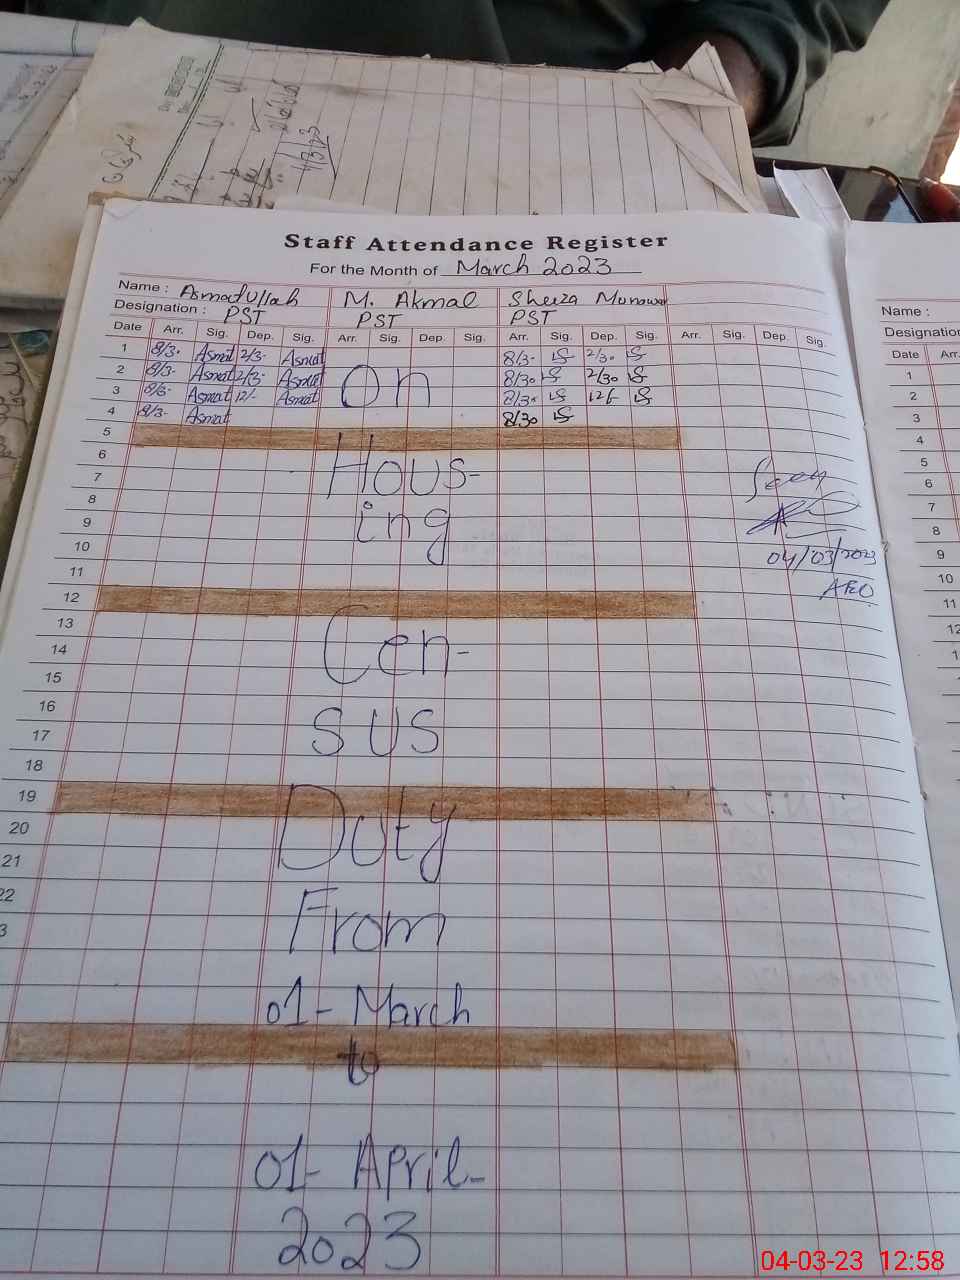 Staff Attendance Register
For the Month of March 2023
Name : Asmatullah M. Akmal Sheeza Munawar
Designation : PST PST PST
Date Arr. Sig. Dep. Sig. Arr. Sig. Dep. Sig. Arr. Sig. Dep. Sig. Arr. Sig. Dep. Sig.
1 8/3. Asmat 2/3. Asmat 8/3. 2/30
2 8/3. Asmat 2/3. Asmat 8/30 2/30
3 8/3. Asmat 12/. Asmat 8/3. 12/.
4 8/3. Asmat 8/30
On
5
6
Hous-
7
8
ing
9
10
11
12
13
Cen-
14
15
16
sus
17
18
19
Duty
20
21
22
From
3
01- March
to
01- April-
2023
Seen
04/03/2023
AEO
Name :
Designation
Date Arr.
1
2
3
4
5
6
7
8
9
10
11
12
1
4/3/23
04-03-23 12:58